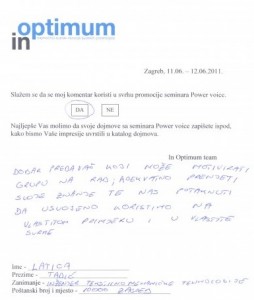 optimum
in
Zagreb, 11.06. – 12.06.2011.
Slažem se da se moj komentar koristi u svrhu promocije seminara Power voice.
DA NE
Najljepše Vas molimo da svoje dojmove sa seminara Power voice zapišete ispod,
kako bismo Vaše impresije uvrstili u katalog dojmova.
In Optimum team
DOBAR PREDAVAČ KOJI MOŽE MOTIVIRATI
GRUPU NA RAD, ADEKVATNO PRENIJETI
SVOJE ZNANJE TE NAS POTAKNUTI
DA USVOJENO KORISTIMO NA
VLASTITOM PRIMJERU I U VLASTITE
SVRHE
Ime - LATICA
Prezime - TADIĆ
Zanimanje - INŽENJER TEKSTILNO MEHANIČKE TEHNOLOGIJE
Poštanski broj i mjesto - 10000 ZAGREB